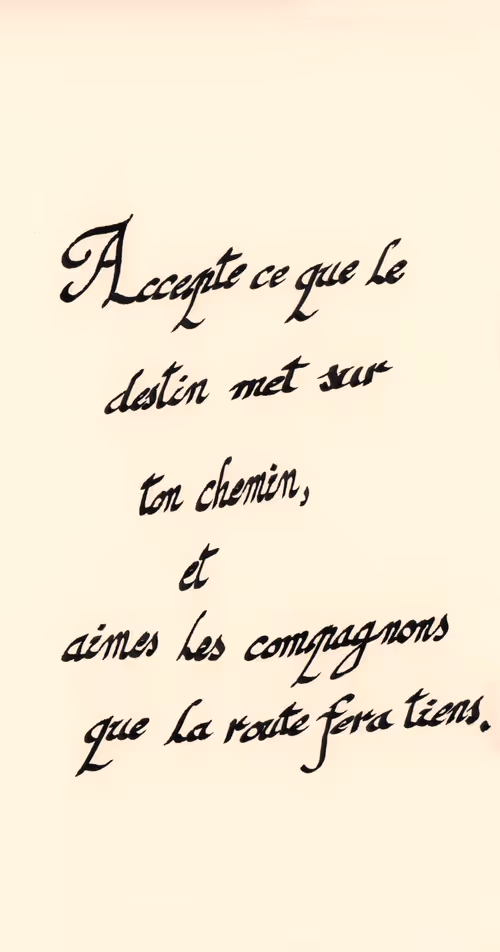 Accepte ce que le
destin met sur
ton chemin,
et
aimes les compagnons
que la route fera tiens.